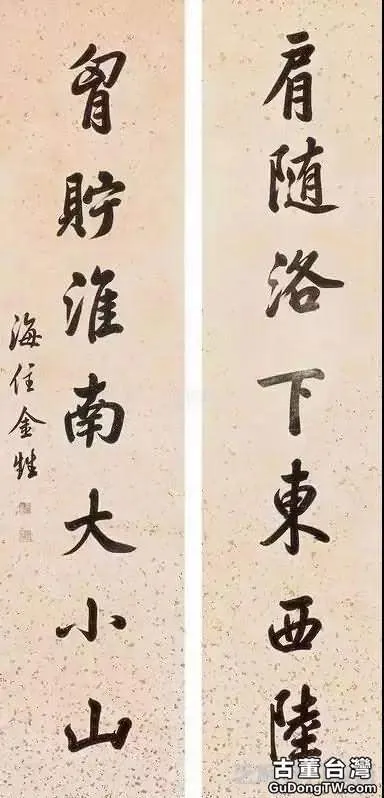 肩随洛下東西陸
胷貯淮南大小山
海住金甡
古董台灣
GuDongTW.com